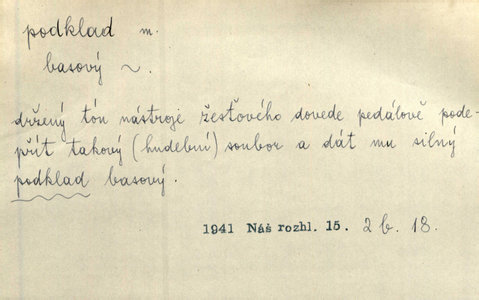 podklad m.
basový ~.
držený tón nástroje žesťového dovede pedálově pode-
přít takový (hudební) soubor a dát mu silný
podklad basový.
1941 Náš rozhl. 15. 2 b. 18.